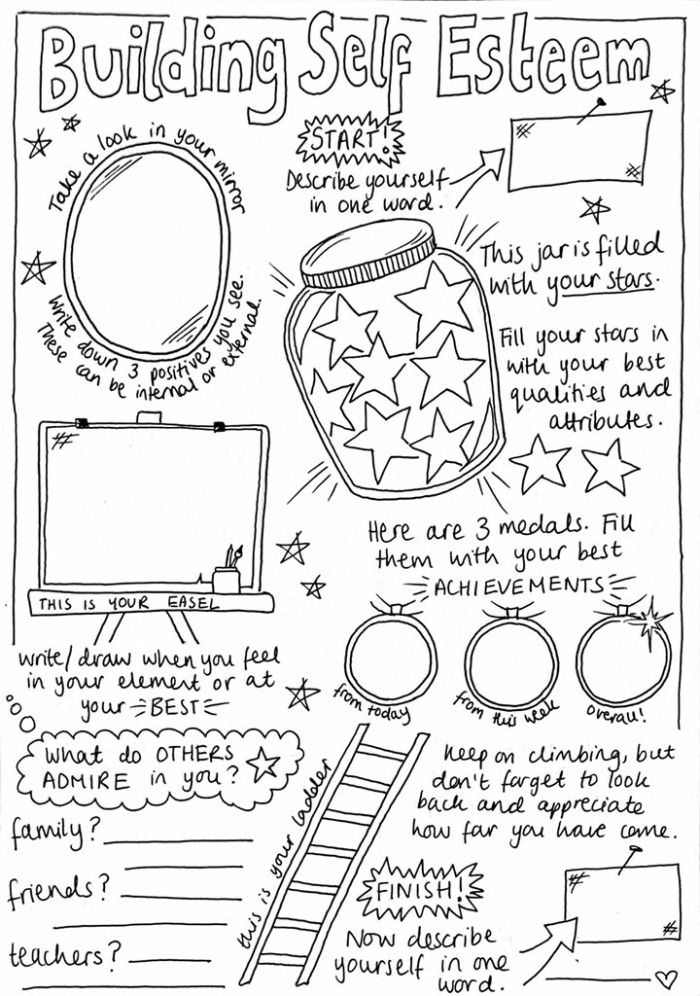 Building Self Esteem
Take a look in your mirror
Write down 3 positives you see.
These can be internal or external.
START!
Describe yourself
in one word.
This jar is filled
with your stars.
Fill your stars in
with your best
qualities and
attributes.
Here are 3 medals. Fill
them with your best
ACHIEVEMENTS
from today
from this week
overall!
THIS IS YOUR EASEL
Write/draw when you feel
in your element or at
your BEST
What do OTHERS
ADMIRE in you?
family?
friends?
teachers?
this is your ladder
Keep on climbing, but
don't forget to look
back and appreciate
how far you have come.
FINISH!
Now describe
yourself in one
word.